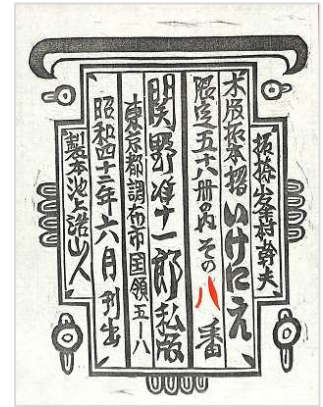 村幹夫
木版拓本摺いけにえ
限定五十八冊の内その八番
関野凖一郎私版
東京都調布市国領五ー八
昭和四十二年六月刊出
製本池上浩山人